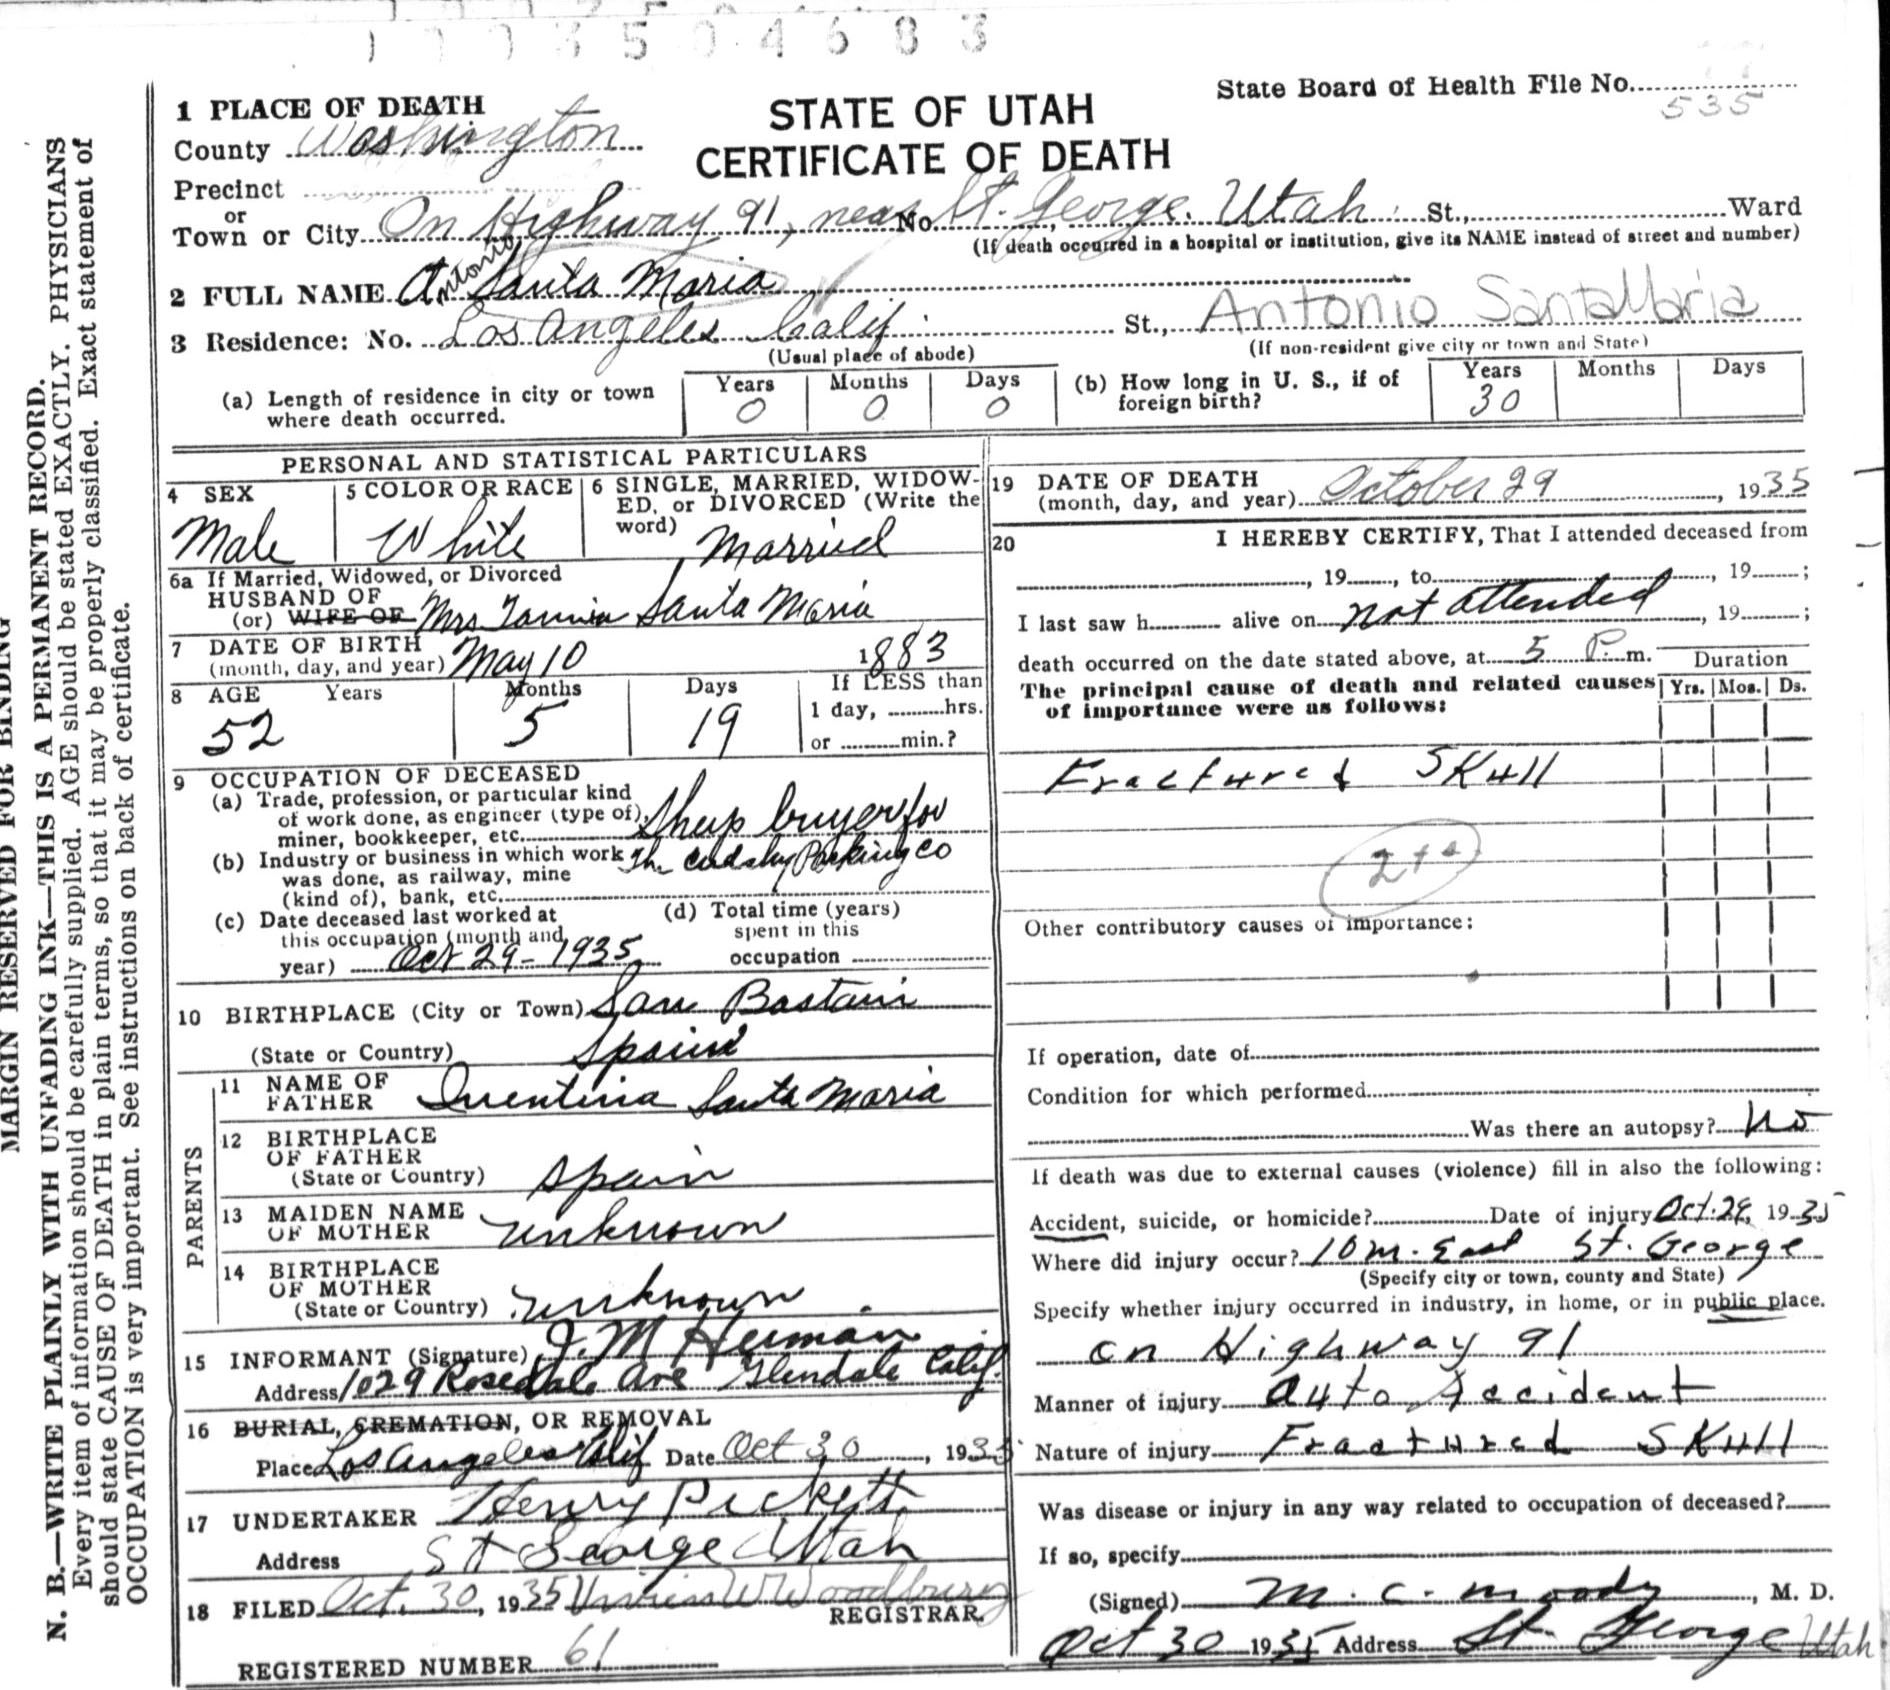 1 0 0 3 5 0 4 6 8 3
State Board of Health File No.
535
STATE OF UTAH
CERTIFICATE OF DEATH
1 PLACE OF DEATH
County Washington
Precinct
or
Town or City On Highway 91, near No. St. George, Utah St., Ward
(If death occurred in a hospital or institution, give its NAME instead of street and number)
2 FULL NAME Antonio Santa Maria
3 Residence: No. Los Angeles Calif. St., Antonio SantaMaria
(Usual place of abode) (If non-resident give city or town and State)
(a) Length of residence in city or town where death occurred. Years 0 Months 0 Days 0
(b) How long in U. S., if of foreign birth? Years 30 Months Days
PERSONAL AND STATISTICAL PARTICULARS
4 SEX
Male
5 COLOR OR RACE
White
6 SINGLE, MARRIED, WIDOW-
ED, or DIVORCED (Write the
word) Married
6a If Married, Widowed, or Divorced
HUSBAND OF
(or) WIFE OF Mrs Santa Maria
7 DATE OF BIRTH
(month, day, and year) May 10 1883
8 AGE Years Months Days If LESS than
52 5 19 1 day, hrs.
or min.?
9 OCCUPATION OF DECEASED
(a) Trade, profession, or particular kind
of work done, as engineer (type of)
miner, bookkeeper, etc. Sheep buyer for
(b) Industry or business in which work The Cudahy Packing Co
was done, as railway, mine
(kind of), bank, etc.
(c) Date deceased last worked at
this occupation (month and
year) Oct 29-1935
(d) Total time (years)
spent in this
occupation
10 BIRTHPLACE (City or Town) San
(State or Country) Spain
PARENTS
11 NAME OF
FATHER Santa Maria
12 BIRTHPLACE
OF FATHER
(State or Country) Spain
13 MAIDEN NAME
OF MOTHER unknown
14 BIRTHPLACE
OF MOTHER
(State or Country) unknown
15 INFORMANT (Signature) J. M Heiman
Address 1029 Rosedale Ave Glendale Calif.
16 BURIAL, CREMATION, OR REMOVAL
Place Los Angeles Calif Date Oct 30, 1935
17 UNDERTAKER Henry Pickett
Address St George Utah
18 FILED Oct. 30, 1935 Woodbury
REGISTRAR.
REGISTERED NUMBER 61
19 DATE OF DEATH
(month, day, and year) October 29, 1935
20 I HEREBY CERTIFY, That I attended deceased from
, 19 , to , 19 ;
I last saw h alive on not attended, 19 ;
death occurred on the date stated above, at 5 P. m.
Duration
The principal cause of death and related causes Yrs. Mos. Ds.
of importance were as follows:
Fractured Skull
Other contributory causes of importance:
If operation, date of
Condition for which performed
Was there an autopsy? No
If death was due to external causes (violence) fill in also the following:
Accident, suicide, or homicide? Date of injury Oct. 29, 1935
Where did injury occur? 10 m. East St. George
(Specify city or town, county and State)
Specify whether injury occurred in industry, in home, or in public place.
on Highway 91
Manner of injury Auto Accident
Nature of injury Fractured Skull
Was disease or injury in any way related to occupation of deceased?
If so, specify
(Signed) M. C. Moody, M. D.
Oct 30 1935 Address St. George Utah
MARGIN RESERVED FOR BINDING
N. B.—WRITE PLAINLY WITH UNFADING INK—THIS IS A PERMANENT RECORD.
Every item of information should be carefully supplied. AGE should be stated EXACTLY. PHYSICIANS
should state CAUSE OF DEATH in plain terms, so that it may be properly classified. Exact statement of
OCCUPATION is very important. See instructions on back of certificate.